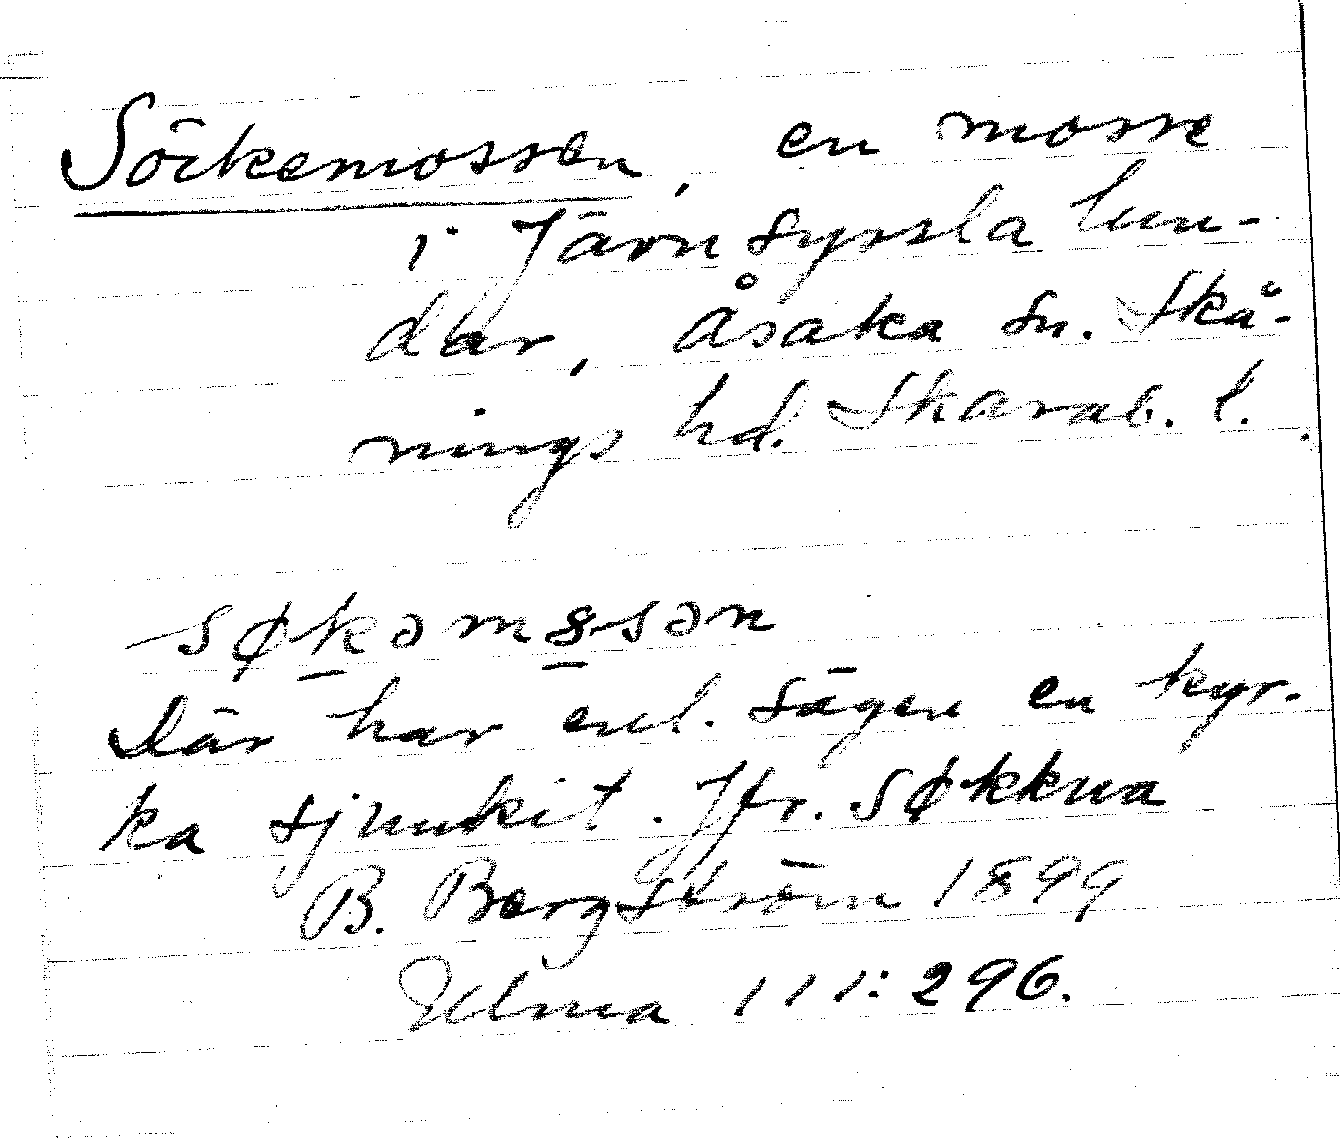 Sökemossen, en mosse
i Järnsyssla lun-
dar, Åsaka sn. Skå-
nings hd. Skarab. l.
søkəmssən
Där har enl. sägen en kyr-
ka sjunkit. Jfr. søkkna
B. Bergström 1899
Ulma 111:296.